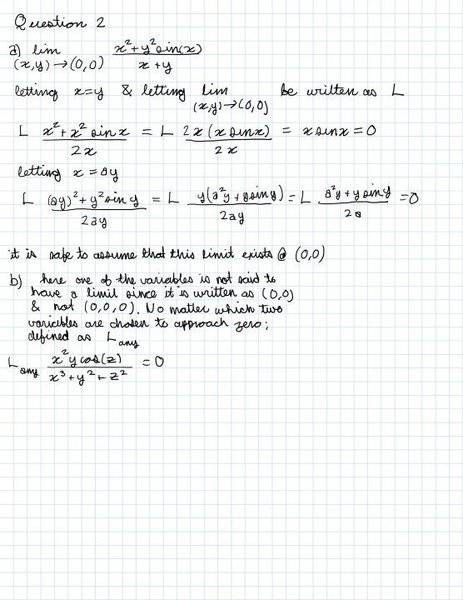 Question 2
a) lim (x,y)→(0,0) x²+y² sin(x) / x+y
letting x=y & letting lim (x,y)→(0,0) be written as L
L x²+x² sin x / 2x = L 2x(x sin x) / 2x = x sin x = 0
letting x = ay
L (ay)²+y² sin y / 2ay = L y(a²y + y sin y) / 2ay = L a²y + y sin y / 2a = 0
it is safe to assume that this limit exists @ (0,0)
b) here one of the variables is not said to
have a limit since it is written as (0,0)
& not (0,0,0). No matter which two
variables are chosen to approach zero;
defined as L any
L any x²y cos(z) / x³+y²+z² = 0